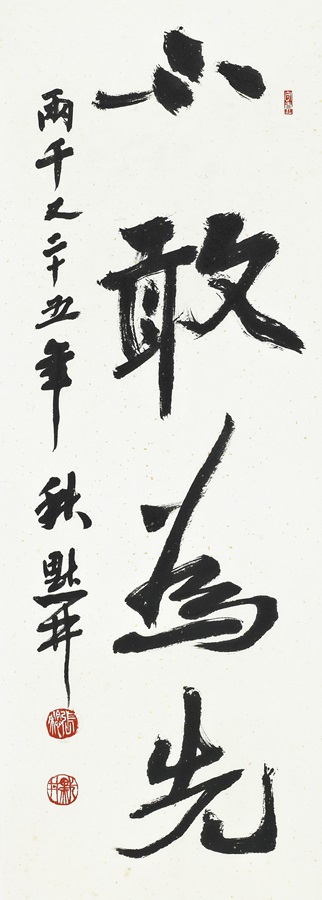 不敢為先
兩千又二十五年 秋 點井